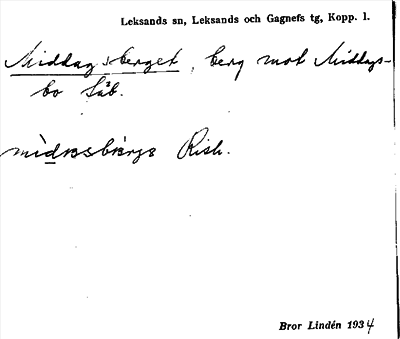 Leksands sn, Leksands och Gagnefs tg, Kopp. 1.
Middagsberget, berg mot Middags-
bo Såb.
Rish.
Bror Lindén 1934